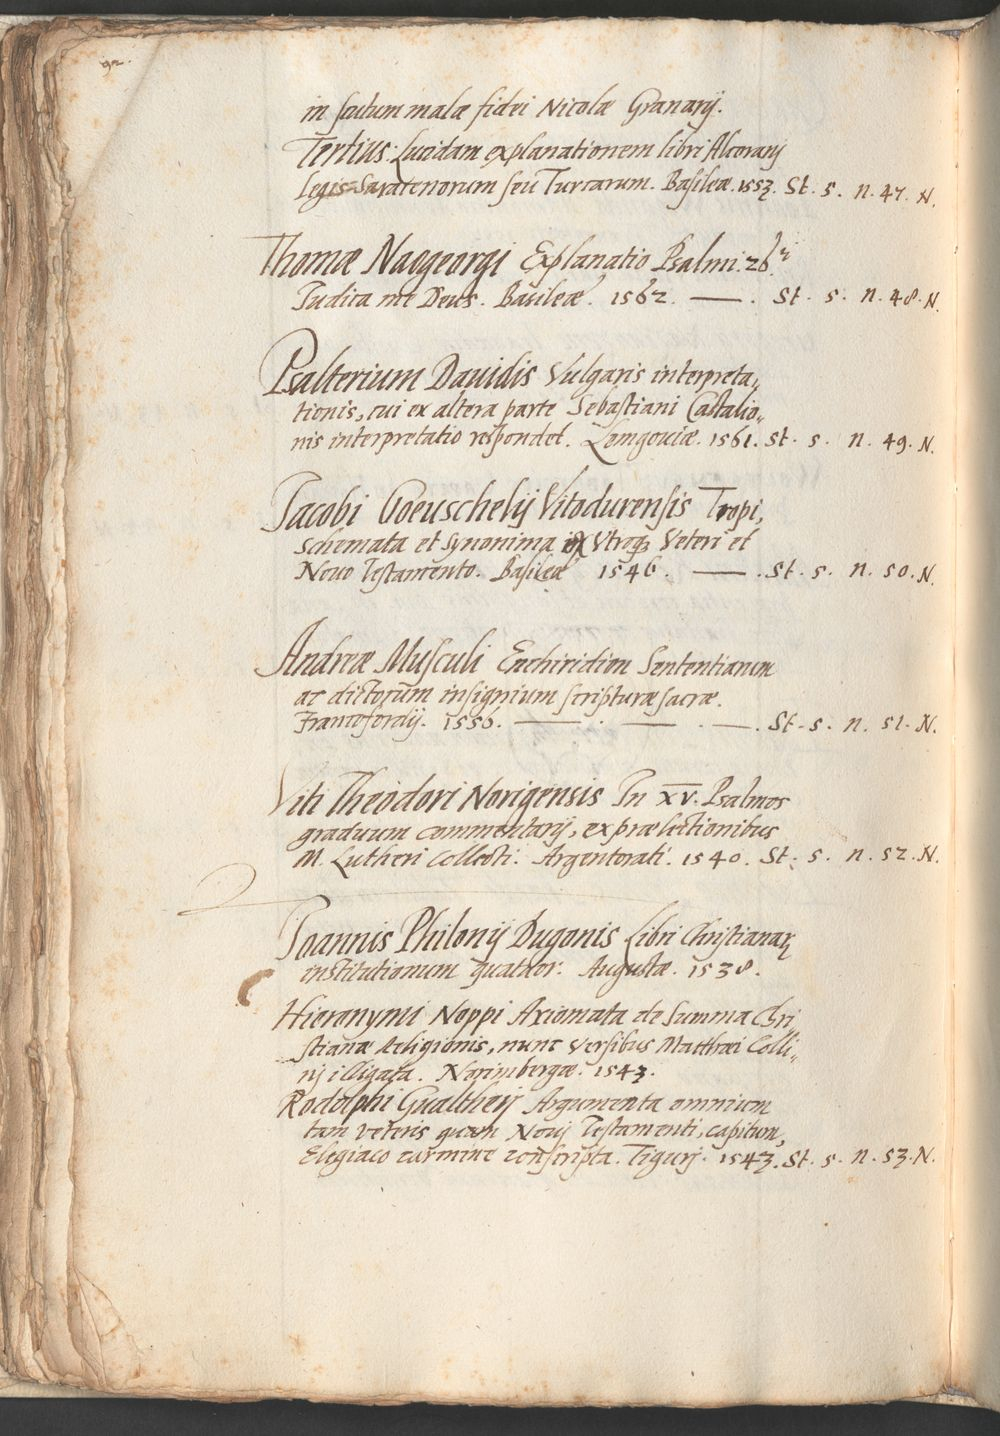 92.
in scutum malæ fidei Nicolæ Granarij.
Tertius: Lucidam explanationem libri Alcorani
legis Saracenorum seu Turcarum. Basileæ. 1553. St. s. n. 47. N.
Thomæ Naogeorgi Explanatio Psalmi. 26.
Iudica me Deus. Basileæ. 1562. —. St. s. n. 48. N.
Psalterium Dauidis Vulgaris interpreta„
tionis, cui ex altera parte Sebastiani Castalio„
nis interpretatio respondet. Lemgouiæ. 1561. St. s. n. 49. N.
Iacobi Goeuschelij Vitodurensis Tropi,
Schemata et synonima ex Vtroq; Veteri et
Nouo Testamento. Basileæ 1546. —. St. s. n. 50. N.
Andreæ Musculi Enchiridion Sententiarum
ac dictorum insignium scripturæ sacræ.
Francofordij. 1556. — . — . —. St. s. n. 51. N.
Viti Theodori Norigensis In XV. Psalmos
graduum commentarij, ex prælectionibus
M. Lutheri collecti. Argentorati. 1540. St. s. n. 52. N.
Ioannis Philonij Dugonis Libri Christianaꝝ
institutionum quatuor. Augustæ. 1538.
Hieronymi Noppi Axiomata de Summa Chri„
stianæ Religionis, nunc versibus Matthæi Colli„
nij illigata. Norimbergæ. 1543.
Rodolphi Gualtherij Argumenta omnium
tam veteris quam Noui Testamenti, capitum,
Elegiaco carmine conscripta. Tiguri. 1543. St. s. n. 53. N.